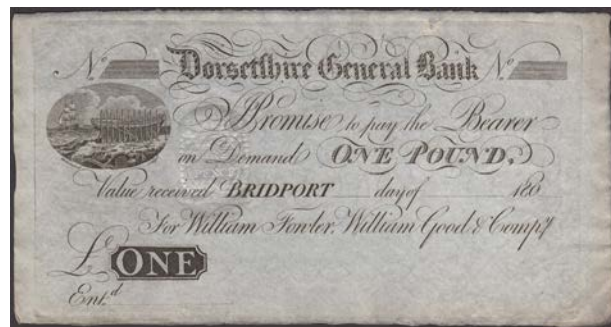 No Dorsetshire General Bank No
I Promise to pay the Bearer
on Demand ONE POUND,
Value received BRIDPORT day of 180
For William Fowler, William Good & Compy
£ ONE
Entd